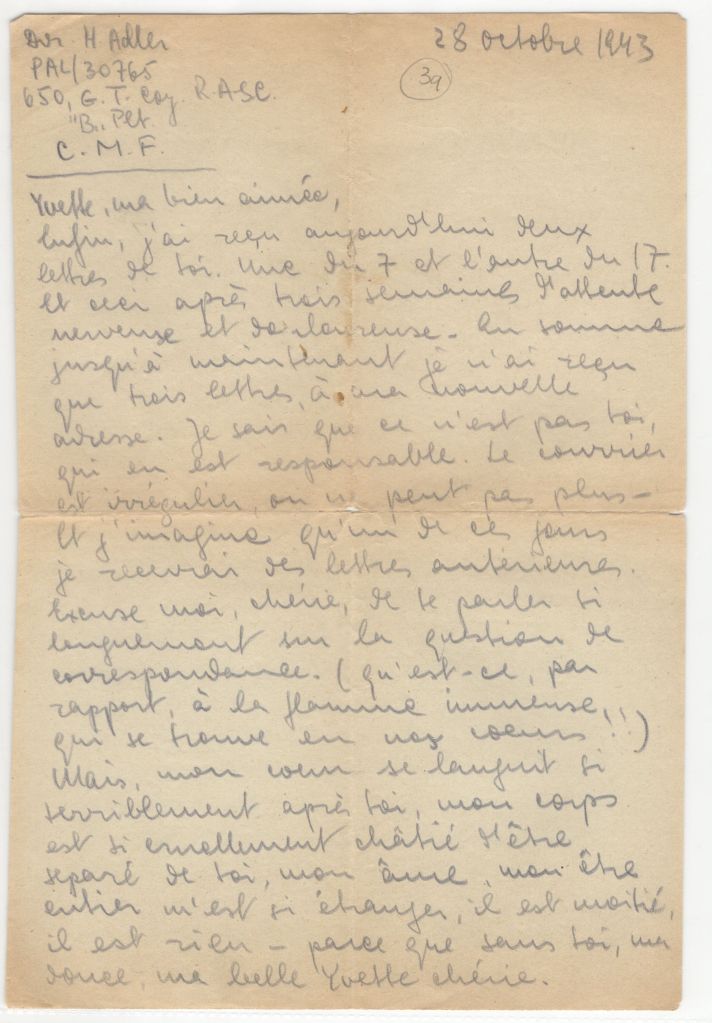 Dvr. H Adler
28 octobre 1943
PAL/30765
39
650, G. T. Coy. R.A.S.C.
"B„ Plt.
C. M. F.
Yvette, ma bien aimée,
Enfin, j'ai reçu aujourd'hui deux
lettres de toi. Une du 7 et l'autre du 17.
Et ceci après trois semaines d'attente
nerveuse et douloureuse. En somme
jusqu'à maintenant je n'ai reçu
que trois lettres, à ma nouvelle
adresse. Je sais que ce n'est pas toi,
qui en est responsable. Le courrier
est irrégulier, on ne peut pas plus –
Et j'imagine qu'un de ces jours
je recevrai des lettres antérieures.
Excuse moi, chérie, de te parler si
longuement sur la question de
correspondance. (qu'est-ce, par
rapport, à la flamme immense,
qui se trouve en nos coeurs!!)
Mais, mon coeur se languit si
terriblement après toi, mon corps
est si cruellement châtié d'être
separé de toi, mon âme, mon être
entier m'est si étranger, il est moitié,
il est rien – parce que sans toi, ma
douce, ma belle Yvette chérie.